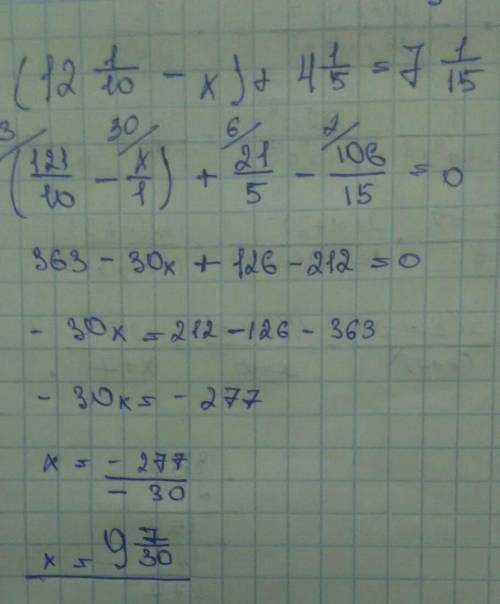 (12 1/10 - x) + 4 1/5 = 7 1/15
3/ 30/ 6/ 2/
(121/10 - x/1) + 21/5 - 106/15 = 0
363 - 30x + 126 - 212 = 0
- 30x = 212 - 126 - 363
- 30x = - 277
x = - 277/- 30
x = 9 7/30